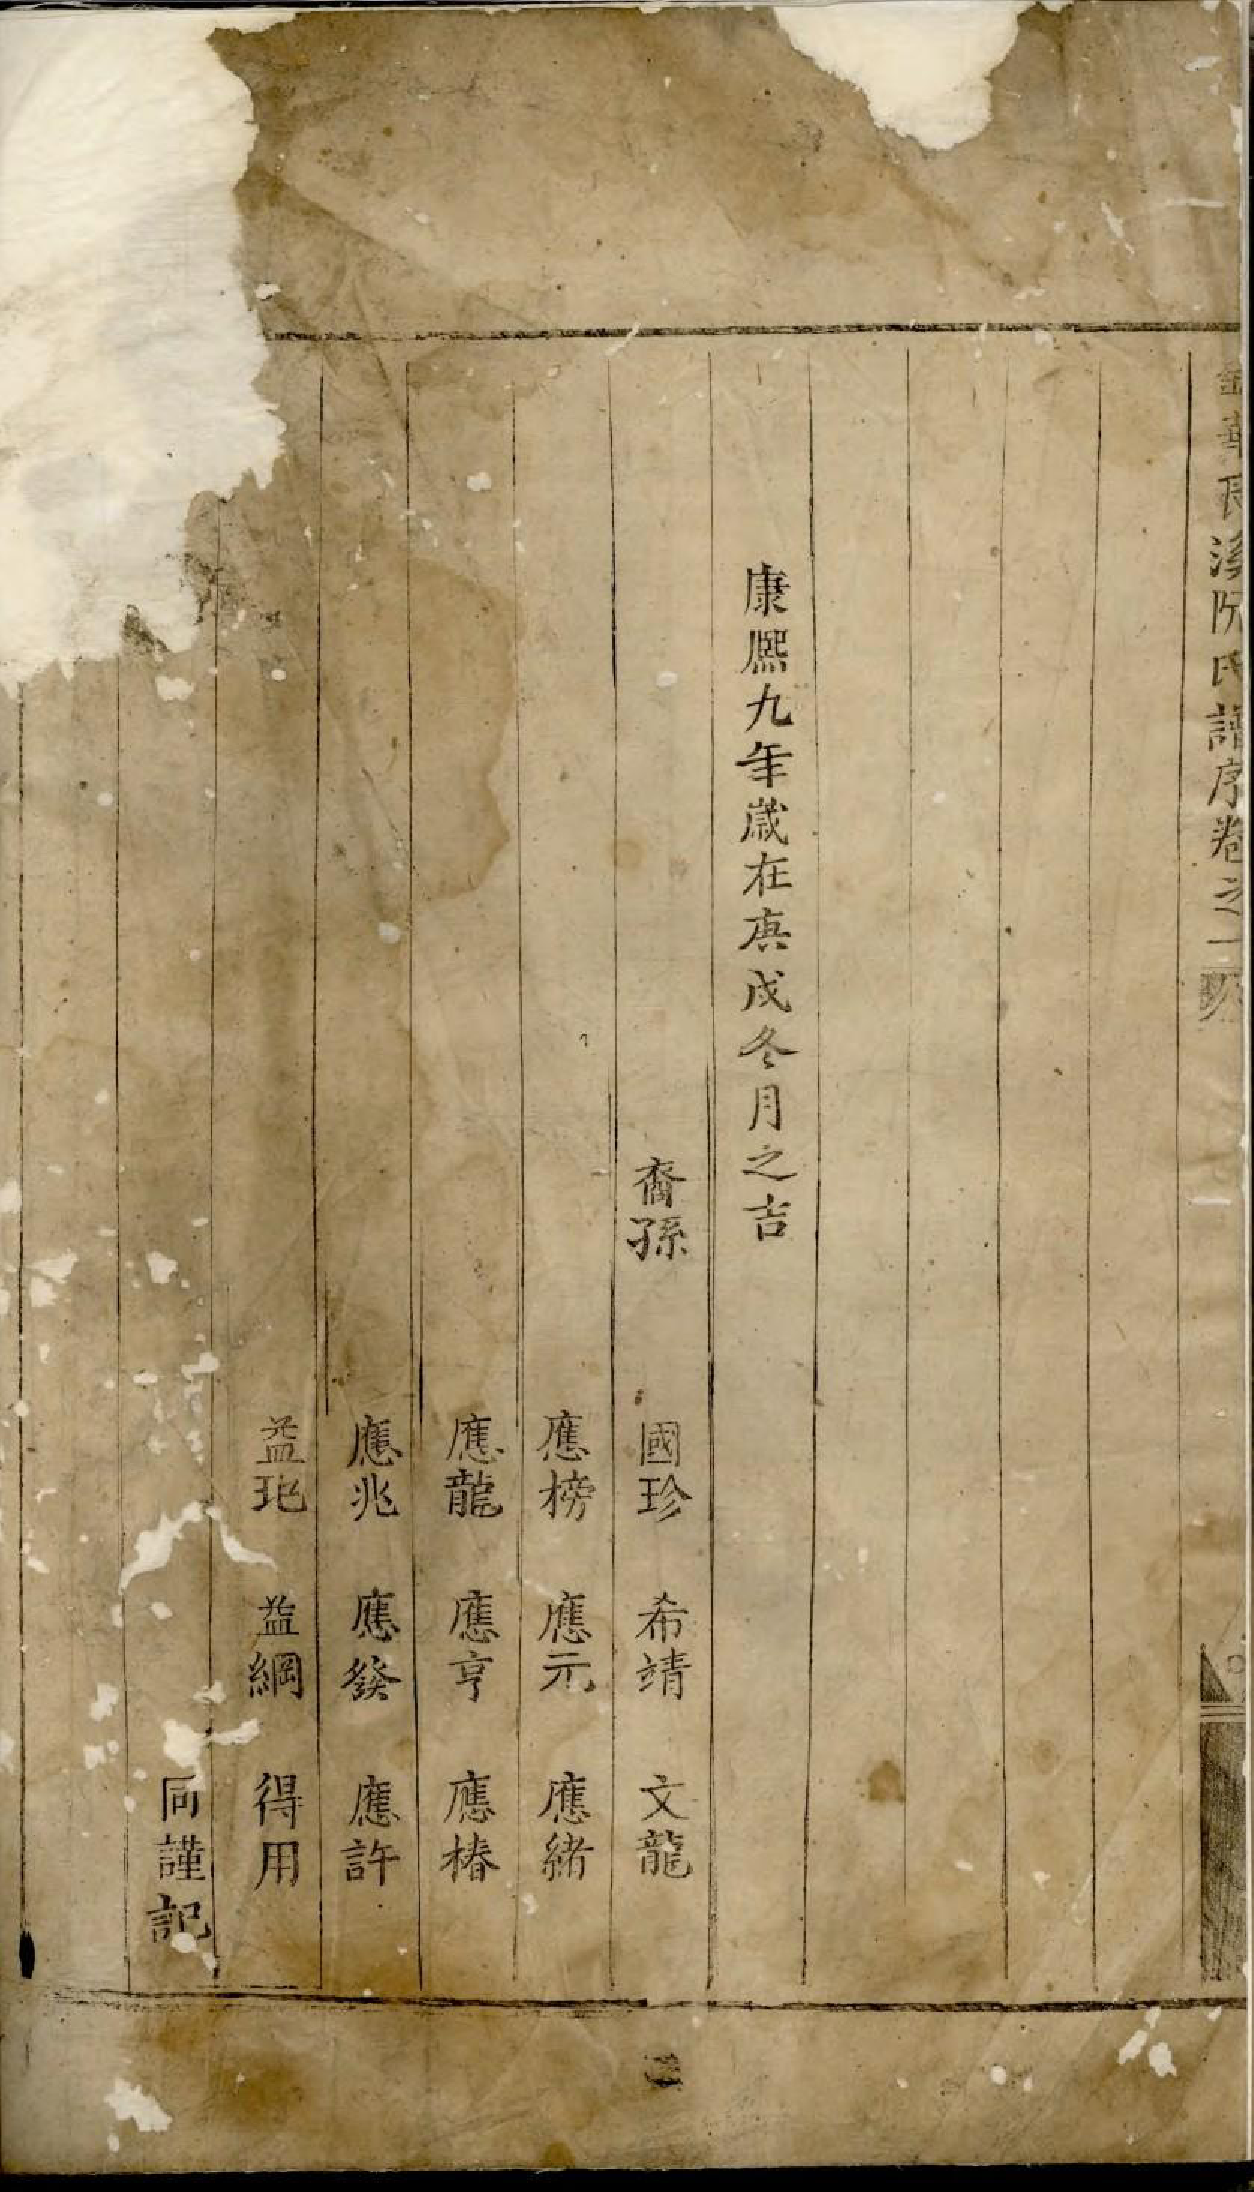 金華長溪阮氏譜序卷之一
康熙九年歲在庚戌冬月之吉
裔孫 國珍 希靖 文龍
應榜 應元 應緒
應龍 應亨 應椿
應兆 應發 應許
益玘 益綱 得用
同謹記